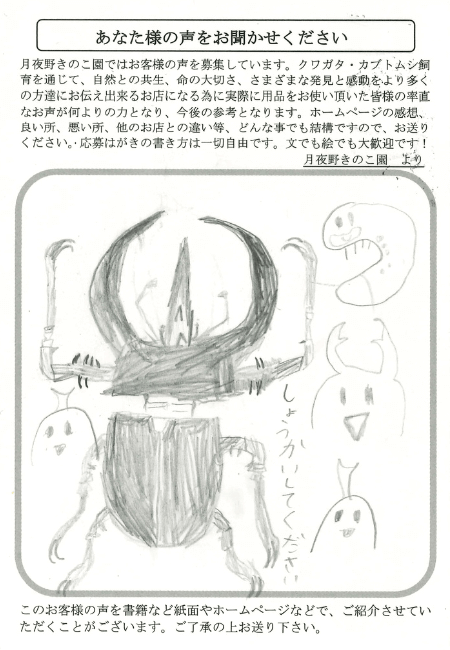 あなた様の声をお聞かせください
月夜野きのこ園ではお客様の声を募集しています。クワガタ・カブトムシ飼
育を通じて、自然との共生、命の大切さ、さまざまな発見と感動をより多く
の方達にお伝え出来るお店になる為に実際に用品をお使い頂いた皆様の率直
なお声が何よりの力となり、今後の参考となります。ホームページの感想、
良い所、悪い所、他のお店との違い等、どんな事でも結構ですので、お送り
ください。応募はがきの書き方は一切自由です。文でも絵でも大歓迎です！
月夜野きのこ園　より
しょうかいしてください
このお客様の声を書籍など紙面やホームページなどで、ご紹介させてい
ただくことがございます。ご了承の上お送り下さい。